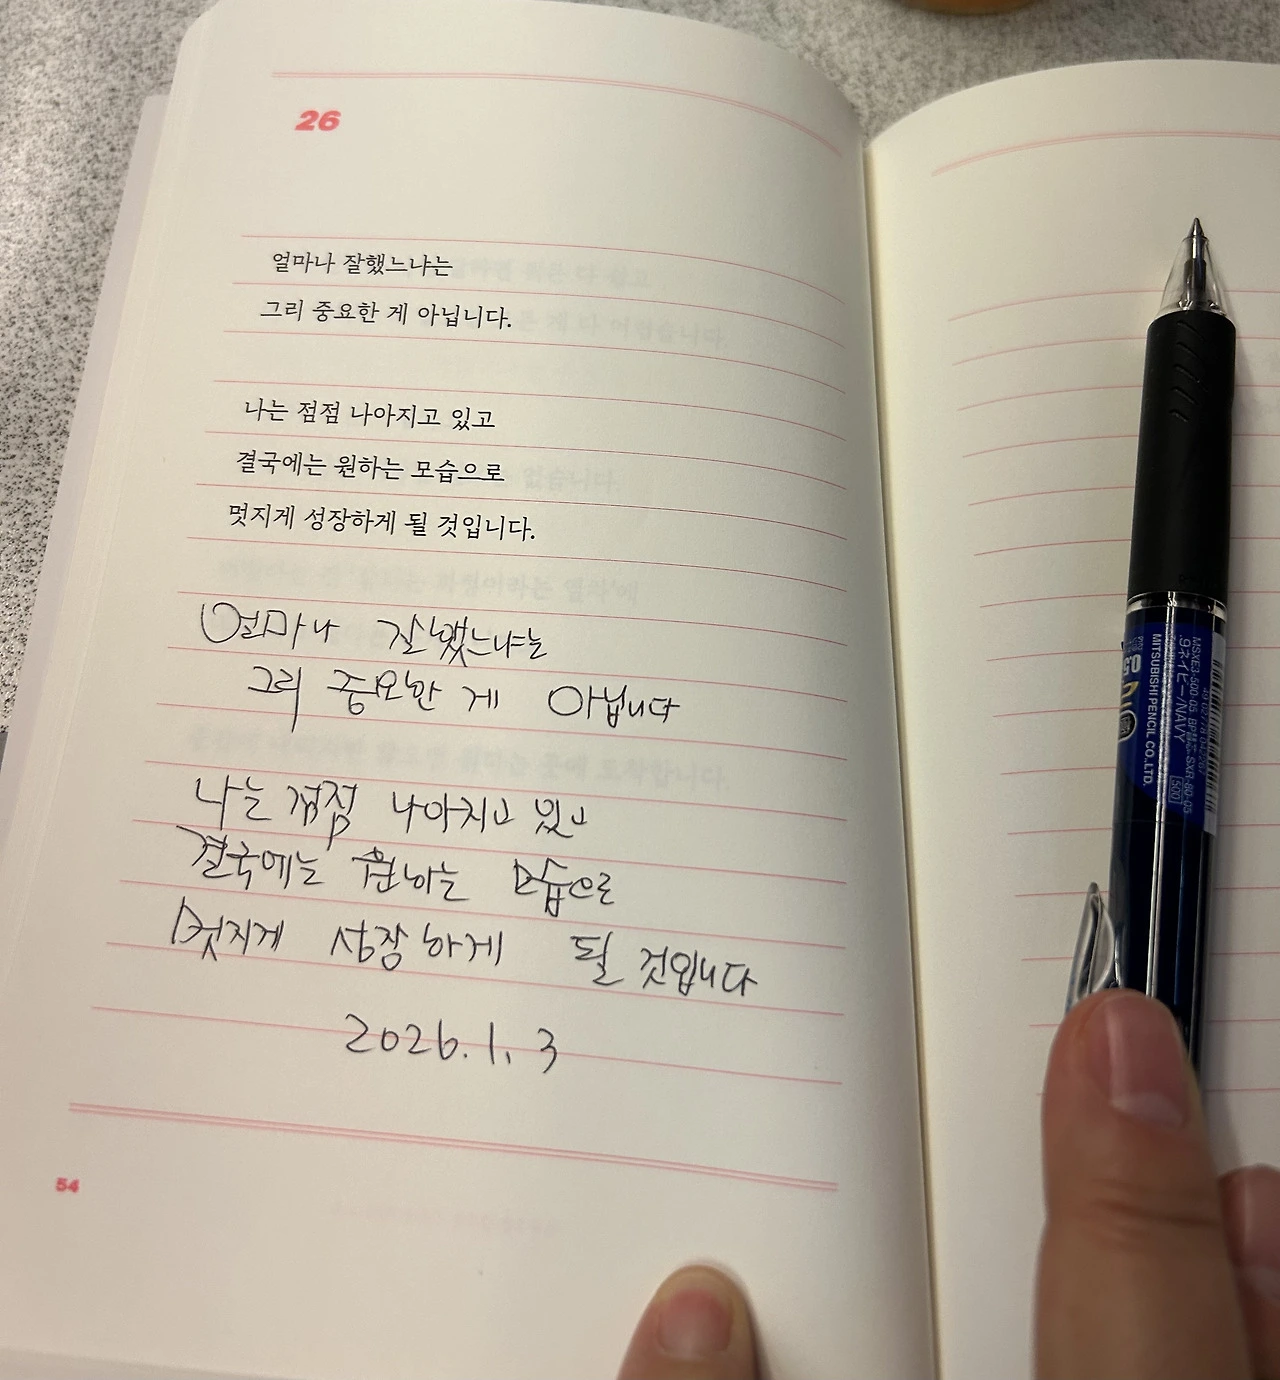 26
얼마나 잘했느냐는
그리 중요한 게 아닙니다.
나는 점점 나아지고 있고
결국에는 원하는 모습으로
멋지게 성장하게 될 것입니다.
얼마나 잘했느냐는
그리 중요한 게 아닙니다
나는 점점 나아지고 있고
결국에는 원하는 모습으로
멋지게 성장하게 될 것입니다
2026.1.3
54
0.5
MITSUBISHI PENCIL CO.,LTD.
MSXE3-500-05
.9ネイビー/NAVY
500